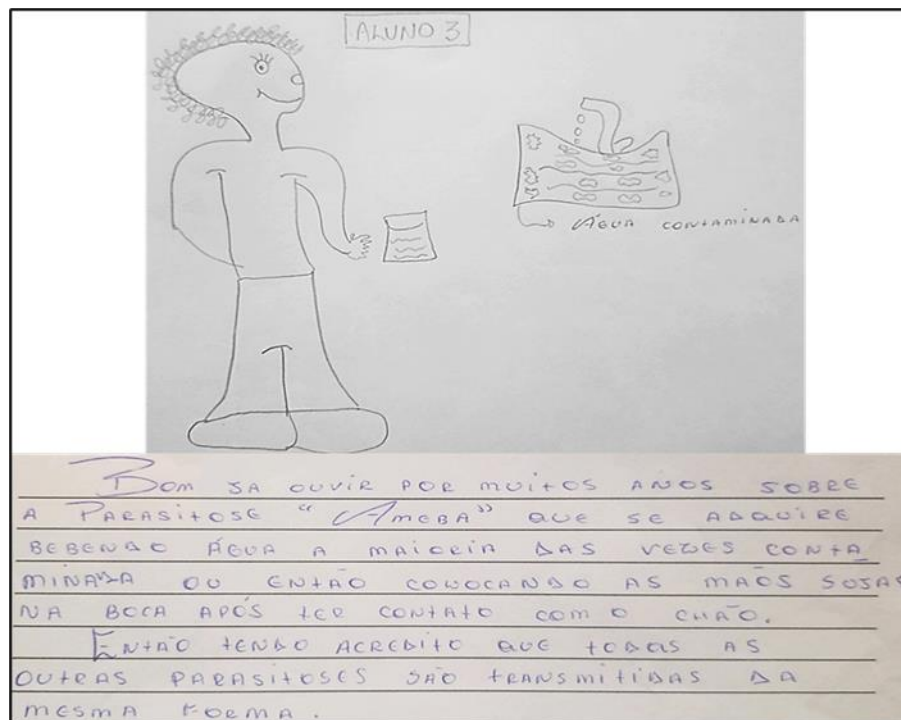 ALUNO 3
ÁGUA CONTAMINADA
BOM SA OUVIR POR MUITOS ANOS SOBRE
A PARASITOSE "AMEBA" QUE SE ADQUIRE
BEBENDO ÁGUA A MAIORIA DAS VEZES CONTA
MINADA OU ENTÃO COLOCANDO AS MÃOS SUJAS
NA BOCA APÓS TER CONTATO COM O CHÃO.
ENTÃO TENDO ACREDITO QUE TODAS AS
OUTRAS PARASITOSES SÃO TRANSMITIDAS DA
MESMA FORMA.